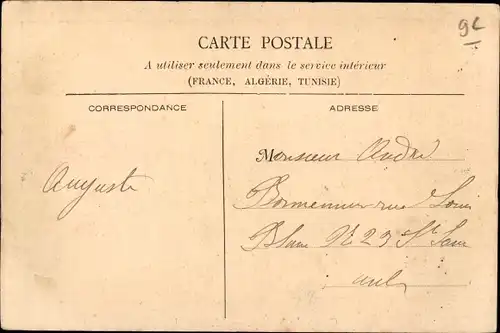 9L
CARTE POSTALE
A utiliser seulement dans le service intérieur
(FRANCE, ALGÉRIE, TUNISIE)
CORRESPONDANCE
ADRESSE
Auguste
Monsieur André
rue Louis
Blanc N 23 St